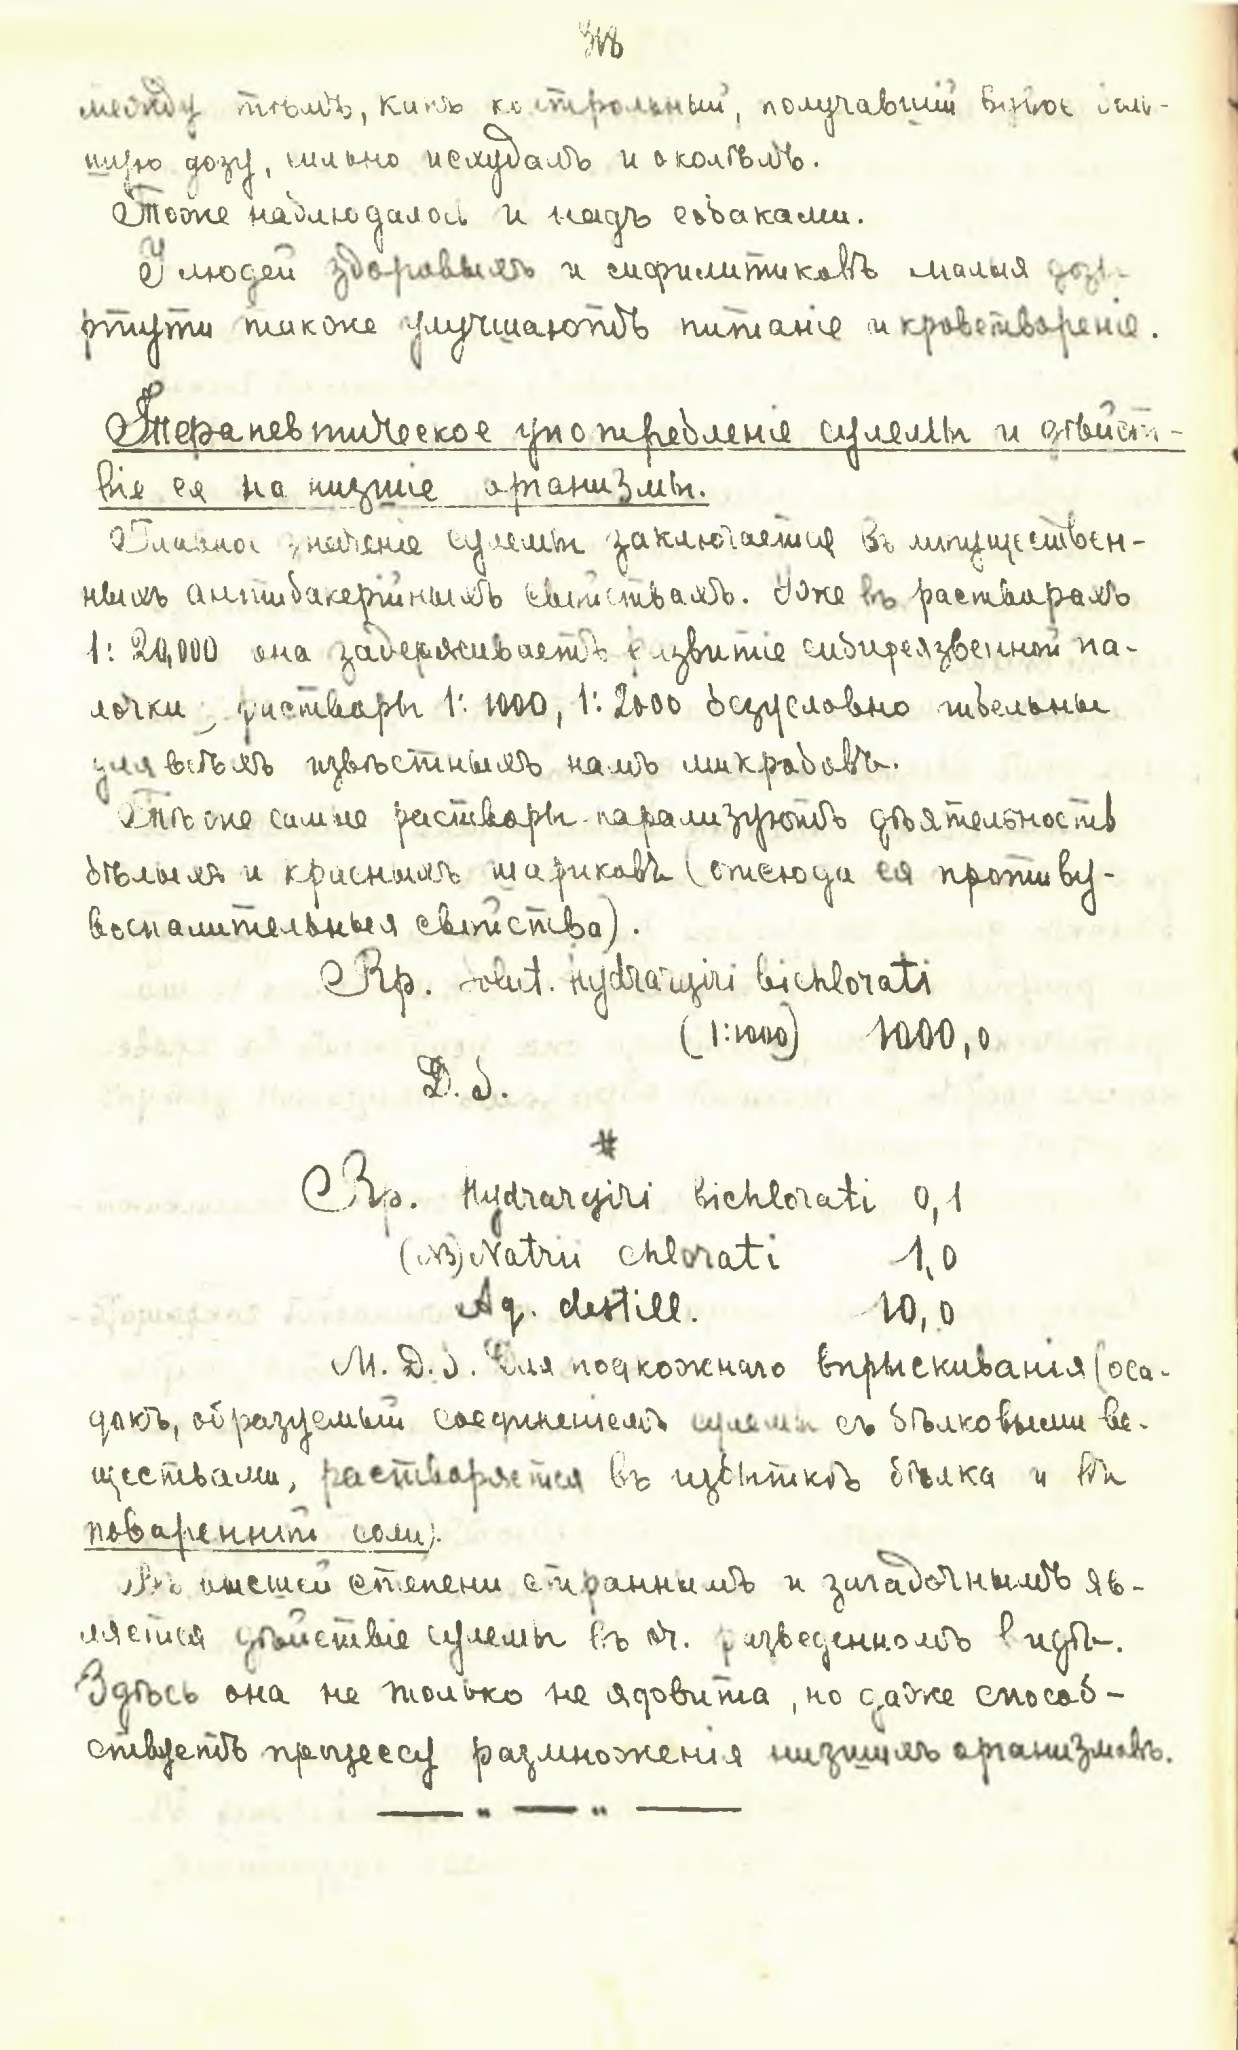 318
между тѣмъ, какъ контрольный, получавшій вдвое боль-
шую дозу, сильно исхудалъ и околѣлъ.
Тоже наблюдалось и надъ собаками.
У людей здоровыхъ и сифилитиковъ малыя дозы
ртути также улучшаютъ питаніе и кроветвореніе.
Терапевтическое употребленіе сулемы и дѣйст-
віе ея на низшіе организмы.
Главное значеніе сулемы заключается въ могуществен-
ныхъ антибакерійныхъ свойствахъ. Уже въ растворахъ
1: 20,000 она задерживаетъ развитіе сибиреязвенной па-
лочки; растворы 1: 1000, 1: 2000 безусловно гибельны
для всѣхъ извѣстныхъ намъ микробовъ.
Тѣ же самые растворы парализуютъ дѣятельность
бѣлыхъ и красныхъ шариковъ (отсюда ея противу-
воспалительныя свойства).
Rp. Solut. Hydrargiri bichlorati
(1:1000) 1000,0
D. S.
#
Rp. Hydrargiri bichlorati 0,1
(NB) Natrii chlorati 1,0
Aq. destill. 10,0
M. D. S. Для подкожнаго впрыскиванія (оса-
докъ, образуемый соединеніемъ сулемы съ бѣлковыми ве-
ществами, растворяется въ избыткѣ бѣлка и въ
поваренной соли).
Въ высшей степени страннымъ и загадочнымъ яв-
ляется дѣйствіе сулемы въ оч. разведенномъ видѣ.
Здѣсь она не только не ядовита, но даже способ-
ствуетъ процессу размноженія низшихъ организмовъ.